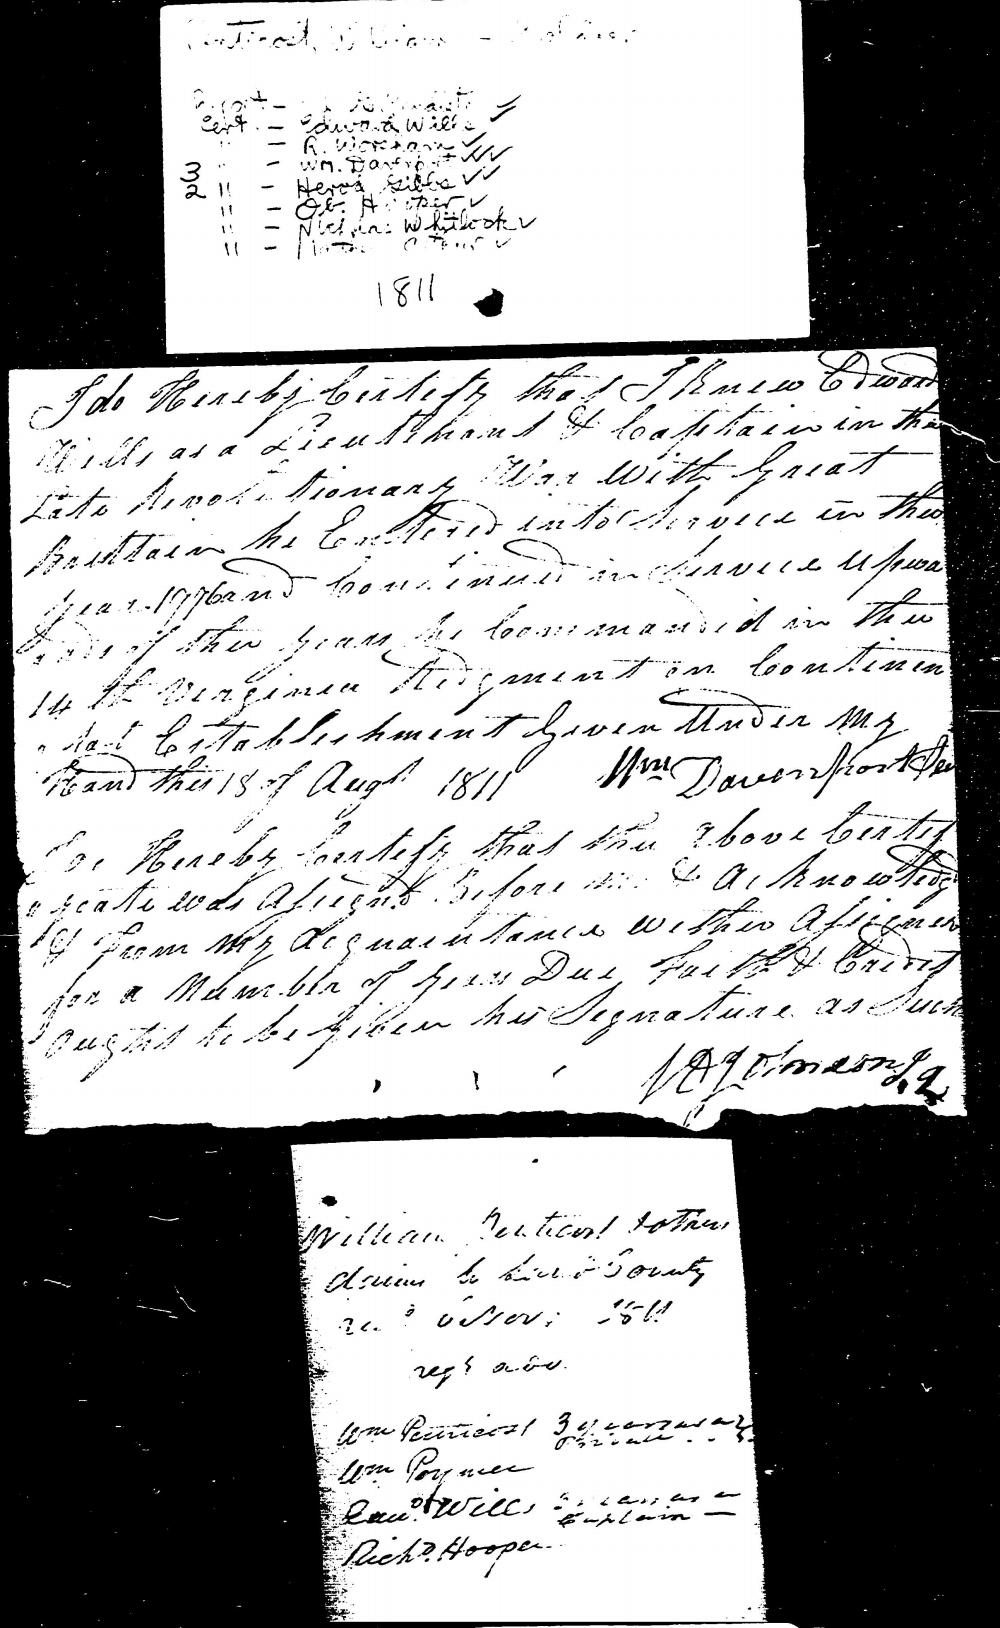 Penticost, William
Cert. - Edward Wills ✓
" - R. Workham ✓
3 " - Wm. Davenport ✓✓✓
2 " - Herod Gibbs ✓✓
" - Ob. Hooper ✓
" - Nicholas Whitlock ✓
" - ✓
1811
I do Hereby Certify that I Knew Edward
Wills as a Lieutenant & Captain in the
Late Revolutionary War With Great
Brittain he Entered into Service in the
year 1776 and Continued in Service Upwa
rds of three years he Commandid in the
14th Verginia Redgment on Continen
tal Establishment Given Under My
Hand this 18 of Augt 1811 Wm Davenport Sen
I do Hereby Certify that the above Certif
icate was Assignd Before me & Acknowledg
& From my Acquaintance With Assigner
for a Number of years Due Faith & Credit
Ought to be given his Signature as Such
Johnson J.P.
William Penticost & others
claims to Land Bounty
recd 1811
regd
Wm Penticost 3 years as a
Private
Wm Poyner
Edwd Wills 3 years as a
Captain —
Richd. Hooper